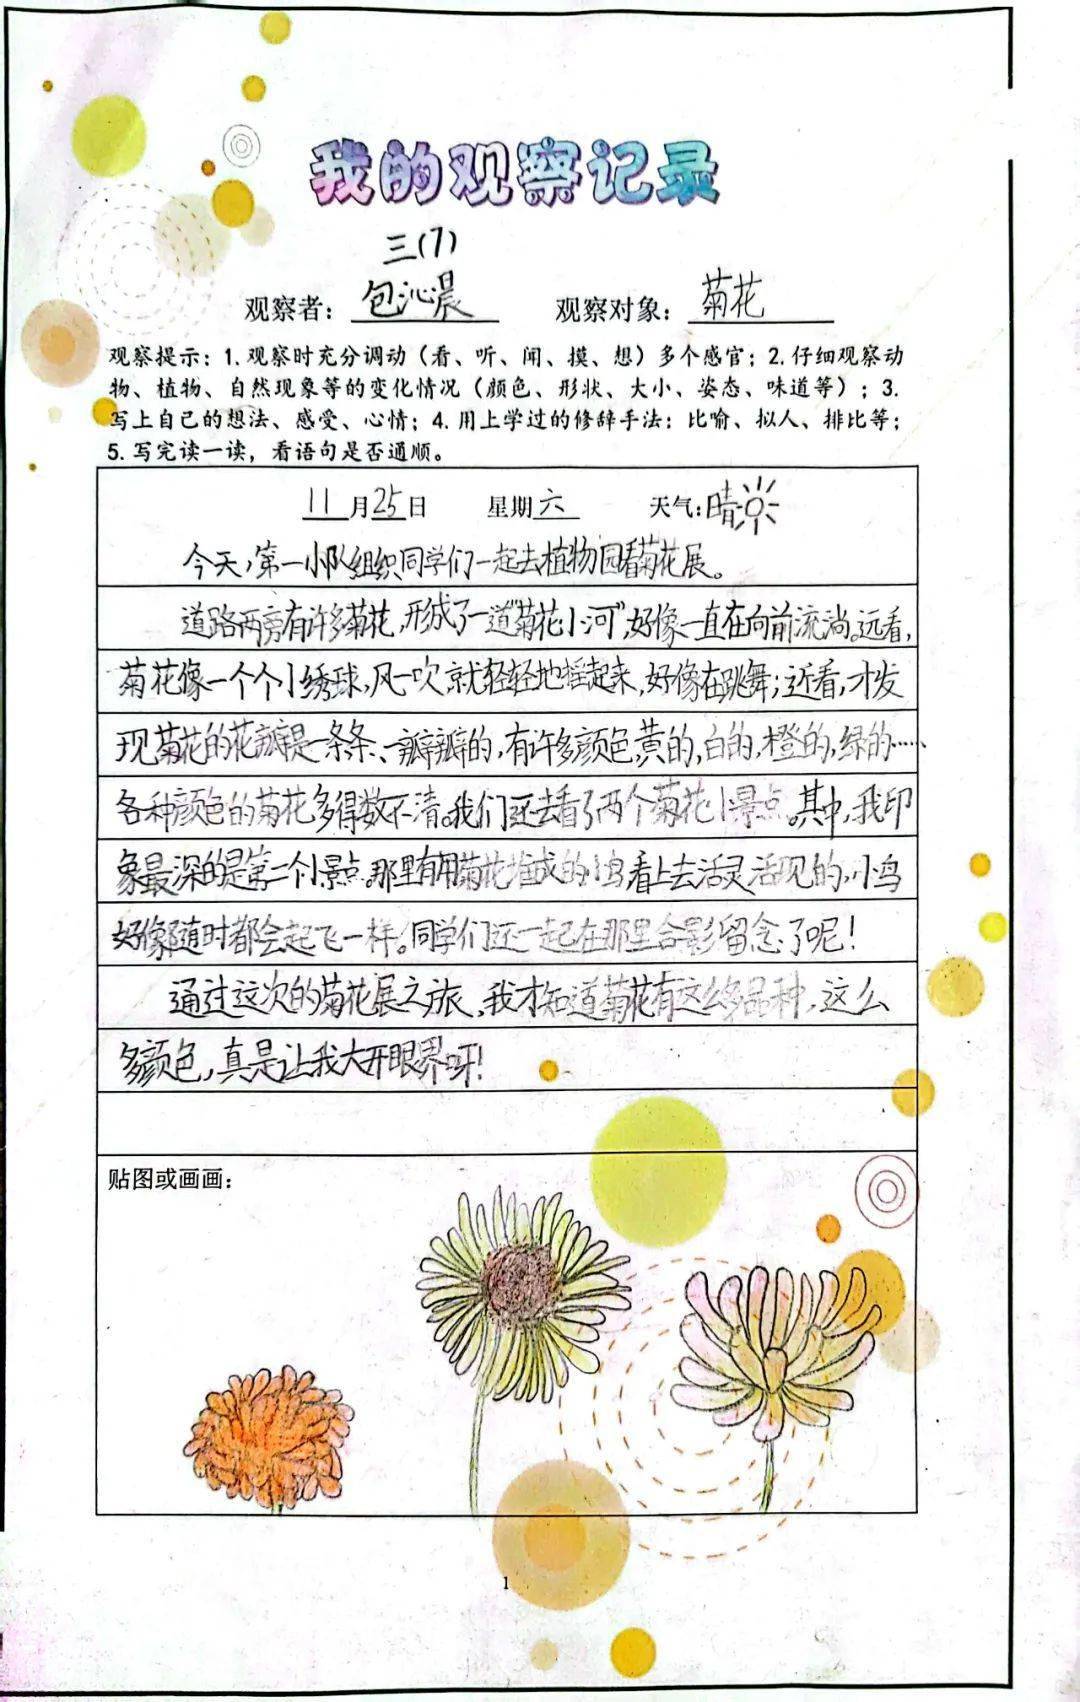 我的观察记录
三(7)
观察者：包沁晨 观察对象：菊花
观察提示：1.观察时充分调动（看、听、闻、摸、想）多个感官；2.仔细观察动
物、植物、自然现象等的变化情况（颜色、形状、大小、姿态、味道等）；3.
写上自己的想法、感受、心情；4.用上学过的修辞手法：比喻、拟人、排比等；
5.写完读一读，看语句是否通顺。
11月25日 星期六 天气：晴
今天，第一小队组织同学们一起去植物园看菊花展。
道路两旁有许多菊花，形成了一道“菊花小河”，好像一直在向前流淌。远看，
菊花像一个个小绣球，风一吹就轻轻地摇起来，好像在跳舞；近看，才发
现菊花的花瓣是一条条、一瓣瓣的，有许多颜色，黄的，白的，橙的，绿的……
各种颜色的菊花多得数不清。我们还去看了两个菊花小景点。其中，我印
象最深的是第二个小景点。那里有用菊花堆成的小鸟，看上去活灵活现的，小鸟
好像随时都会起飞一样。同学们还一起在那里合影留念了呢！
通过这次的菊花展之旅，我才知道菊花有这么多品种，这么
多颜色，真是让我大开眼界呀！
贴图或画画：
1